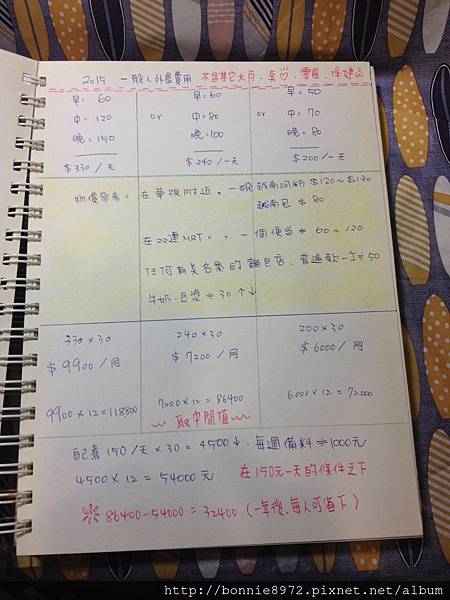 2015 一般人外食費用 不含其它大月、桌、零食、保健品
早= 60 早= 60 早= 50
中= 120 or 中= 80 or 中= 70
晚= 150 晚=100 晚= 80
$330/一天 $240/一天 $200/一天
物價參考。 在華視附近,一碗越南河粉 $120~$130
越南包 $80
在双連MRT〃,一個便當 = 60~120
任何有名氣的麵包店,普遍款一個≒50
牛奶.豆漿≒30↑↓
330×30 240×30 200×30
$9900/月 $7200/月 $6000/月
9900×12=118800 7200×12=86400 6000×12=72000
取中間值
自己煮 150/天×30=4500↓.每週備料≒1000元
4500×12=54000元 在150元一天的條件之下
86400-54000=32400(一年後.每人可省下)
http://bonnie8972.pixnet.net/album